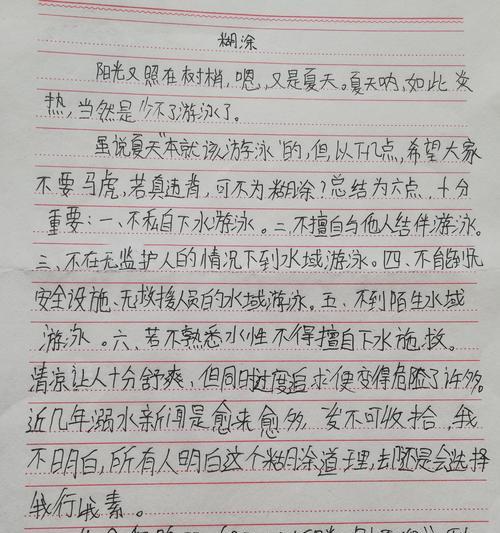 糊涂
阳光又照在树梢，嗯，又是夏天。夏天呐，如此炎
热，当然是少不了游泳了。
虽说夏天“本就该游泳”的，但，以下几点，希望大家
不要马虎，若真违背，可不为糊涂？总结为六点，十分
重要：一、不私自下水游泳。二、不擅自与他人结伴游泳。
三、不在无监护人的情况下到水域游泳。四、不能到无
安全设施、无救援人员的水域游泳。五、不到陌生水域
游泳。六、若不熟悉水性不得擅自下水施救。
清凉让人十分舒爽，但同时过度追求便变得危险了许多。
近几年溺水新闻是愈来愈多，发不可收拾，我
不明白，所有人明白这个糊涂道理，却还是会选择
我行我素。